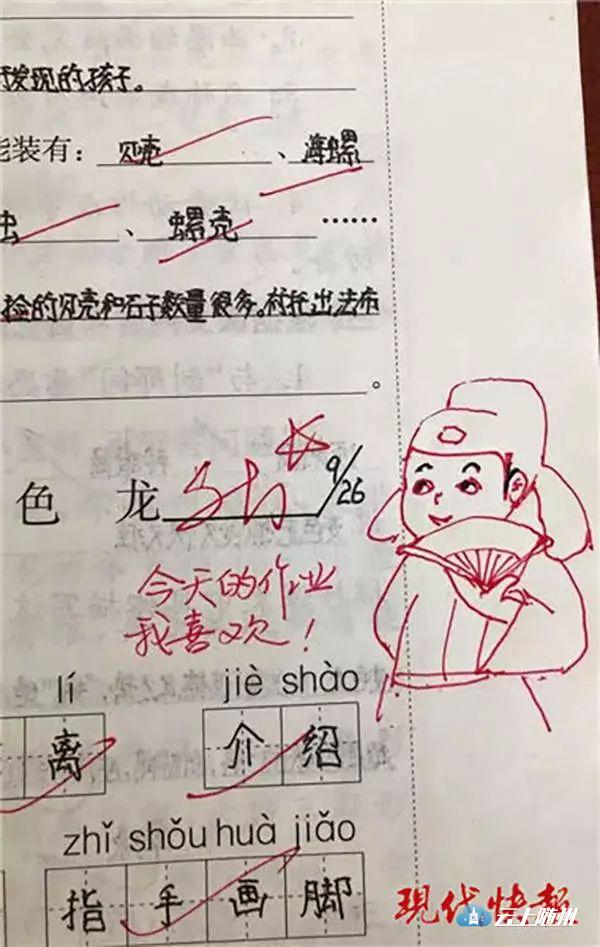 发现的孩子。
能装有：贝壳、海螺
虫、螺壳……
捡的贝壳和石子数量很多。
。
色 龙
9/26
今天的作业
我喜欢！
lí jiè shào
离 介绍
zhǐ shǒu huà jiǎo
指手画脚
现代快报
云上随州